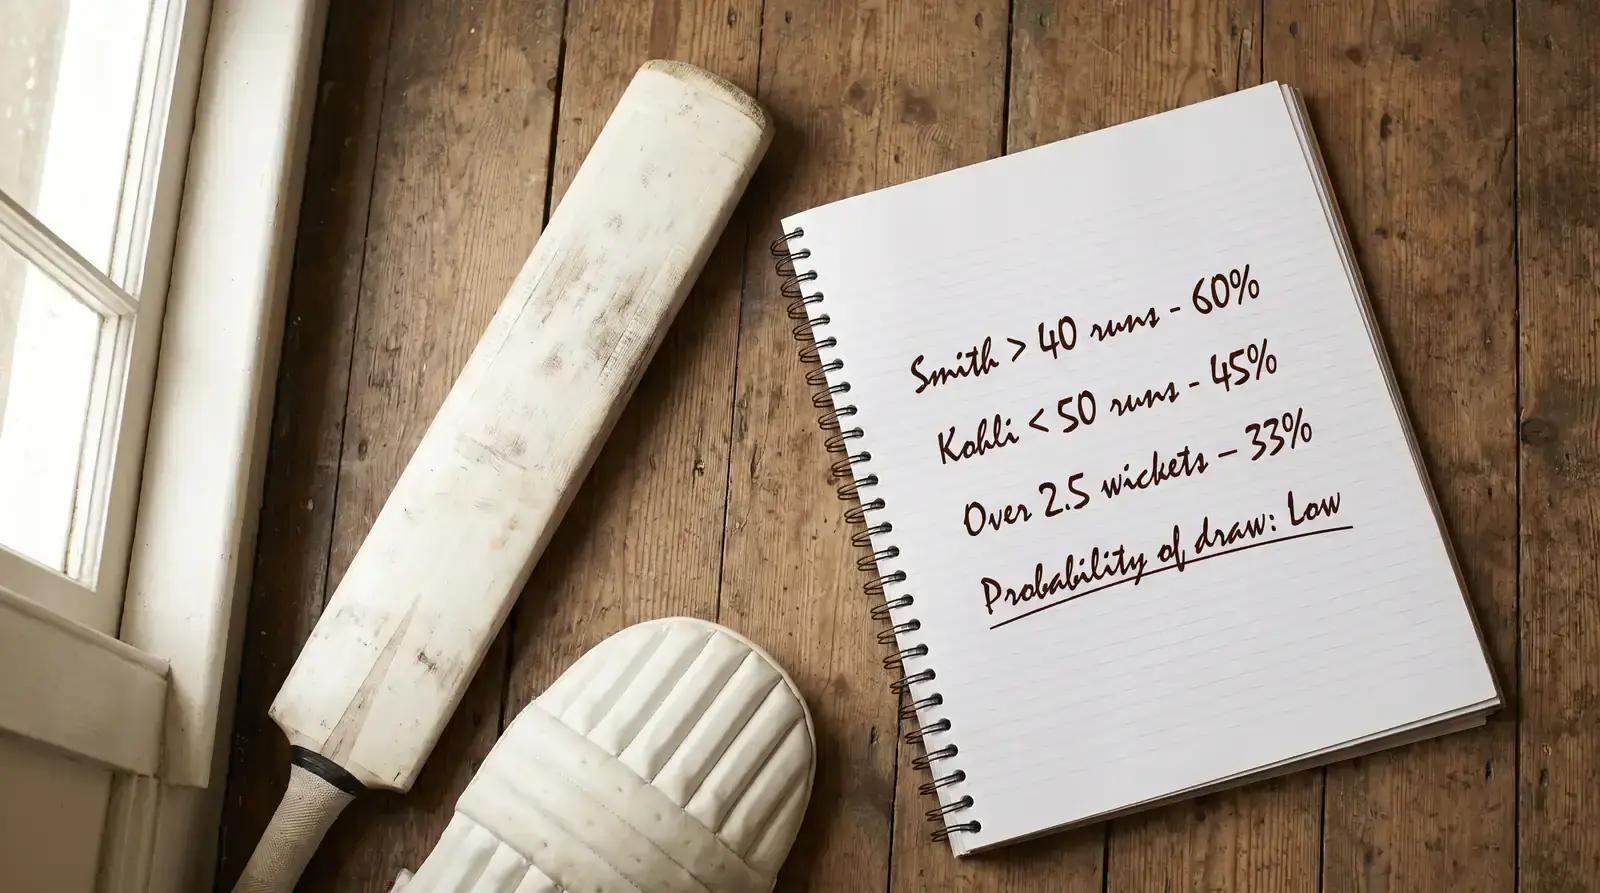 Smith > 40 runs - 60%
Kohli < 50 runs - 45%
Over 2.5 wickets – 33%
Probability of draw: Low